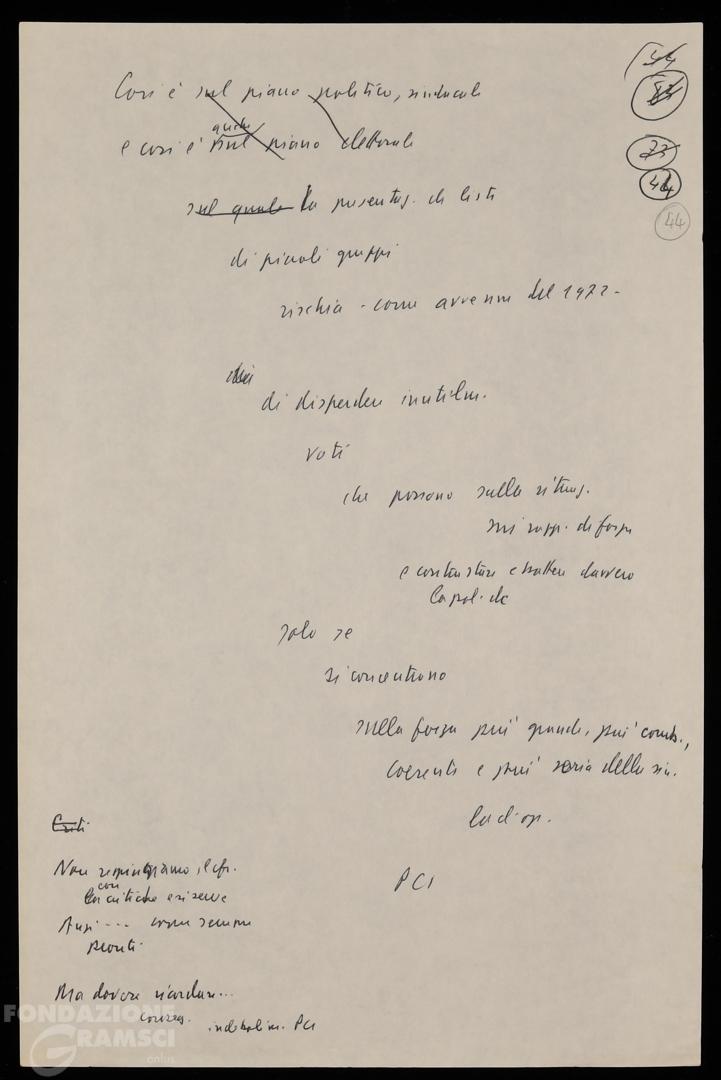 44
83
73
44
44
Così è sul piano politico, sindacale
e così è anche sul piano elettorale
sul quale la presentaz. di liste
di piccoli gruppi
rischia - come avvenne del 1972 -
di disperdere inutilm.
voti
che possono sulla situaz.
sui rapp. di forza
e contrastare e battere davvero
la pol. dc
solo se
si concentrano
sulla forza più grande, più comb.,
coerente e più seria della sin.
PCI
Criti
Non respingiamo
con
critiche e riserve
Anzi --- come sempre
pronti
Ma dovere ricordare...
conseg. indebolim. PCI
FONDAZIONE
GRAMSCI
onlus